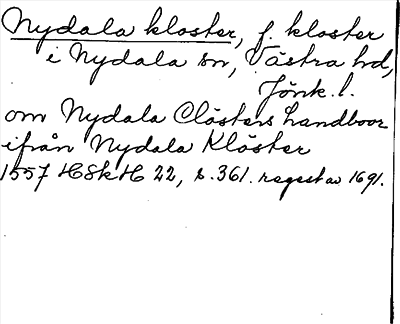 Nydala kloster, f. kloster
i Nydala sn, Västra hd,
Jönk. l.
om Nydala Clösters handboor
ifrån Nydala Klöster
1557 HSkH 22, s. 361. regest av 1691.